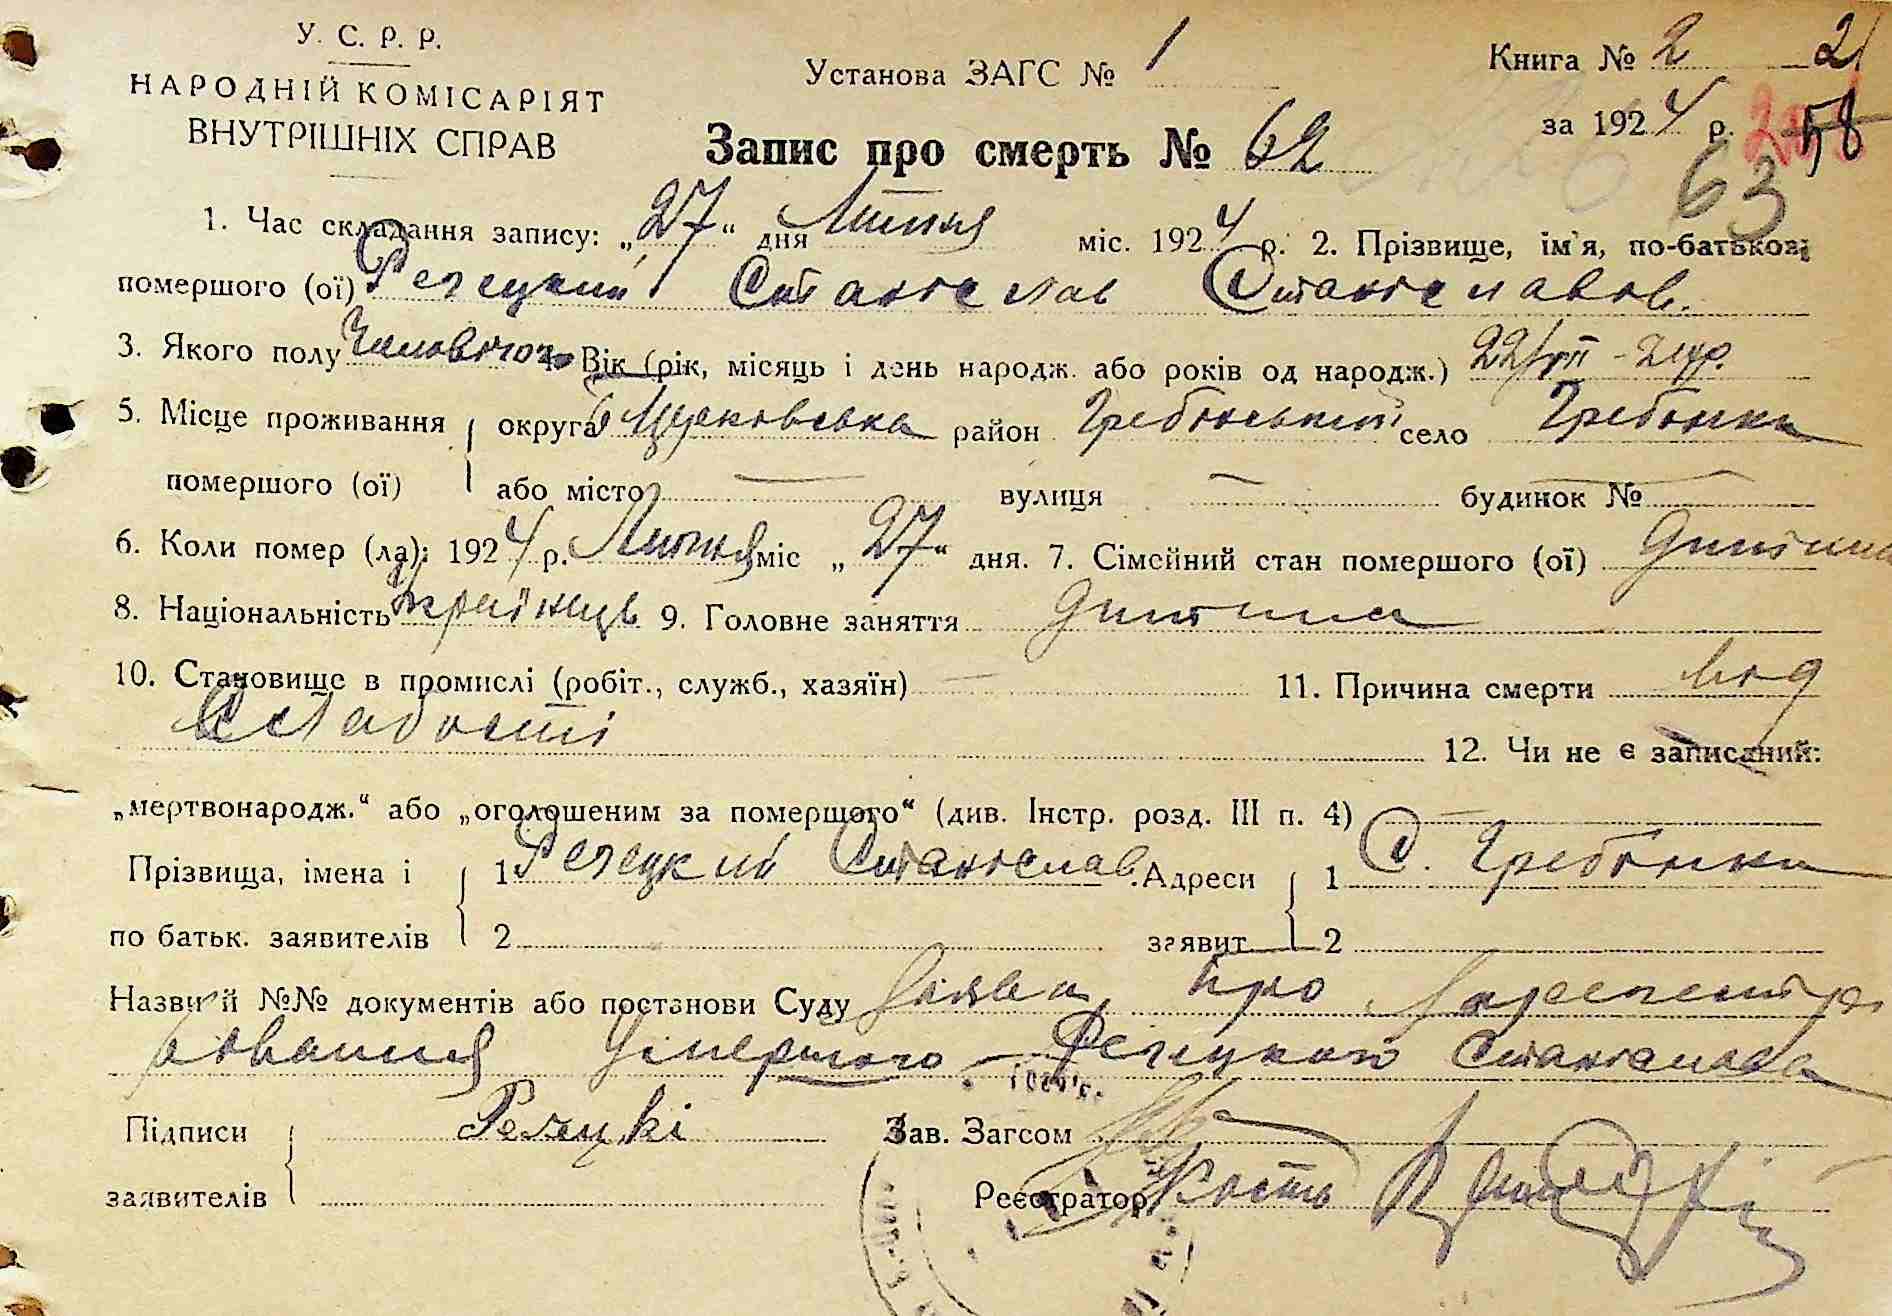 У. С. Р. Р.
НАРОДНІЙ КОМІСАРІЯТ
ВНУТРІШНІХ СПРАВ
Установа ЗАГС № 1
Книга № 2 21
за 1924 р. 58
63
Запис про смерть № 62
1. Час складання запису: „27“ дня Липня міс. 1924 р. 2. Прізвище, ім'я, по-батькові
помершого (ої) Речецкий Станіслав Станіславов.
3. Якого полу Чоловічого 4. Вік (рік, місяць і день народж. або років од народж.) 22/VII - 24р.
5. Місце проживання округа Б Церковська район Гребінський село Гребінки
помершого (ої) або місто — вулиця — будинок № —
6. Коли помер (ла): 1924 р. Липня міс „27“ дня. 7. Сімейний стан помершого (ої) дитина
8. Національність Українець 9. Головне заняття дитина
10. Становище в промислі (робіт., служб., хазяїн) — 11. Причина смерти від
Слабості
12. Чи не є записаний:
„мертвонародж.“ або „оголошеним за померщого“ (див. Інстр. розд. III п. 4) —
Прізвища, імена і 1 Речецкий Станіслав. Адреси 1 С. Гребінки
по батьк. заявителів 2 заявит. 2
Назви й №№ документів або постанови Суду Заява про Зареєстру
вання Умершого Речецкого Станіслава
Підписи Речуцкі Зав. Загсом
заявителів Реєстратор